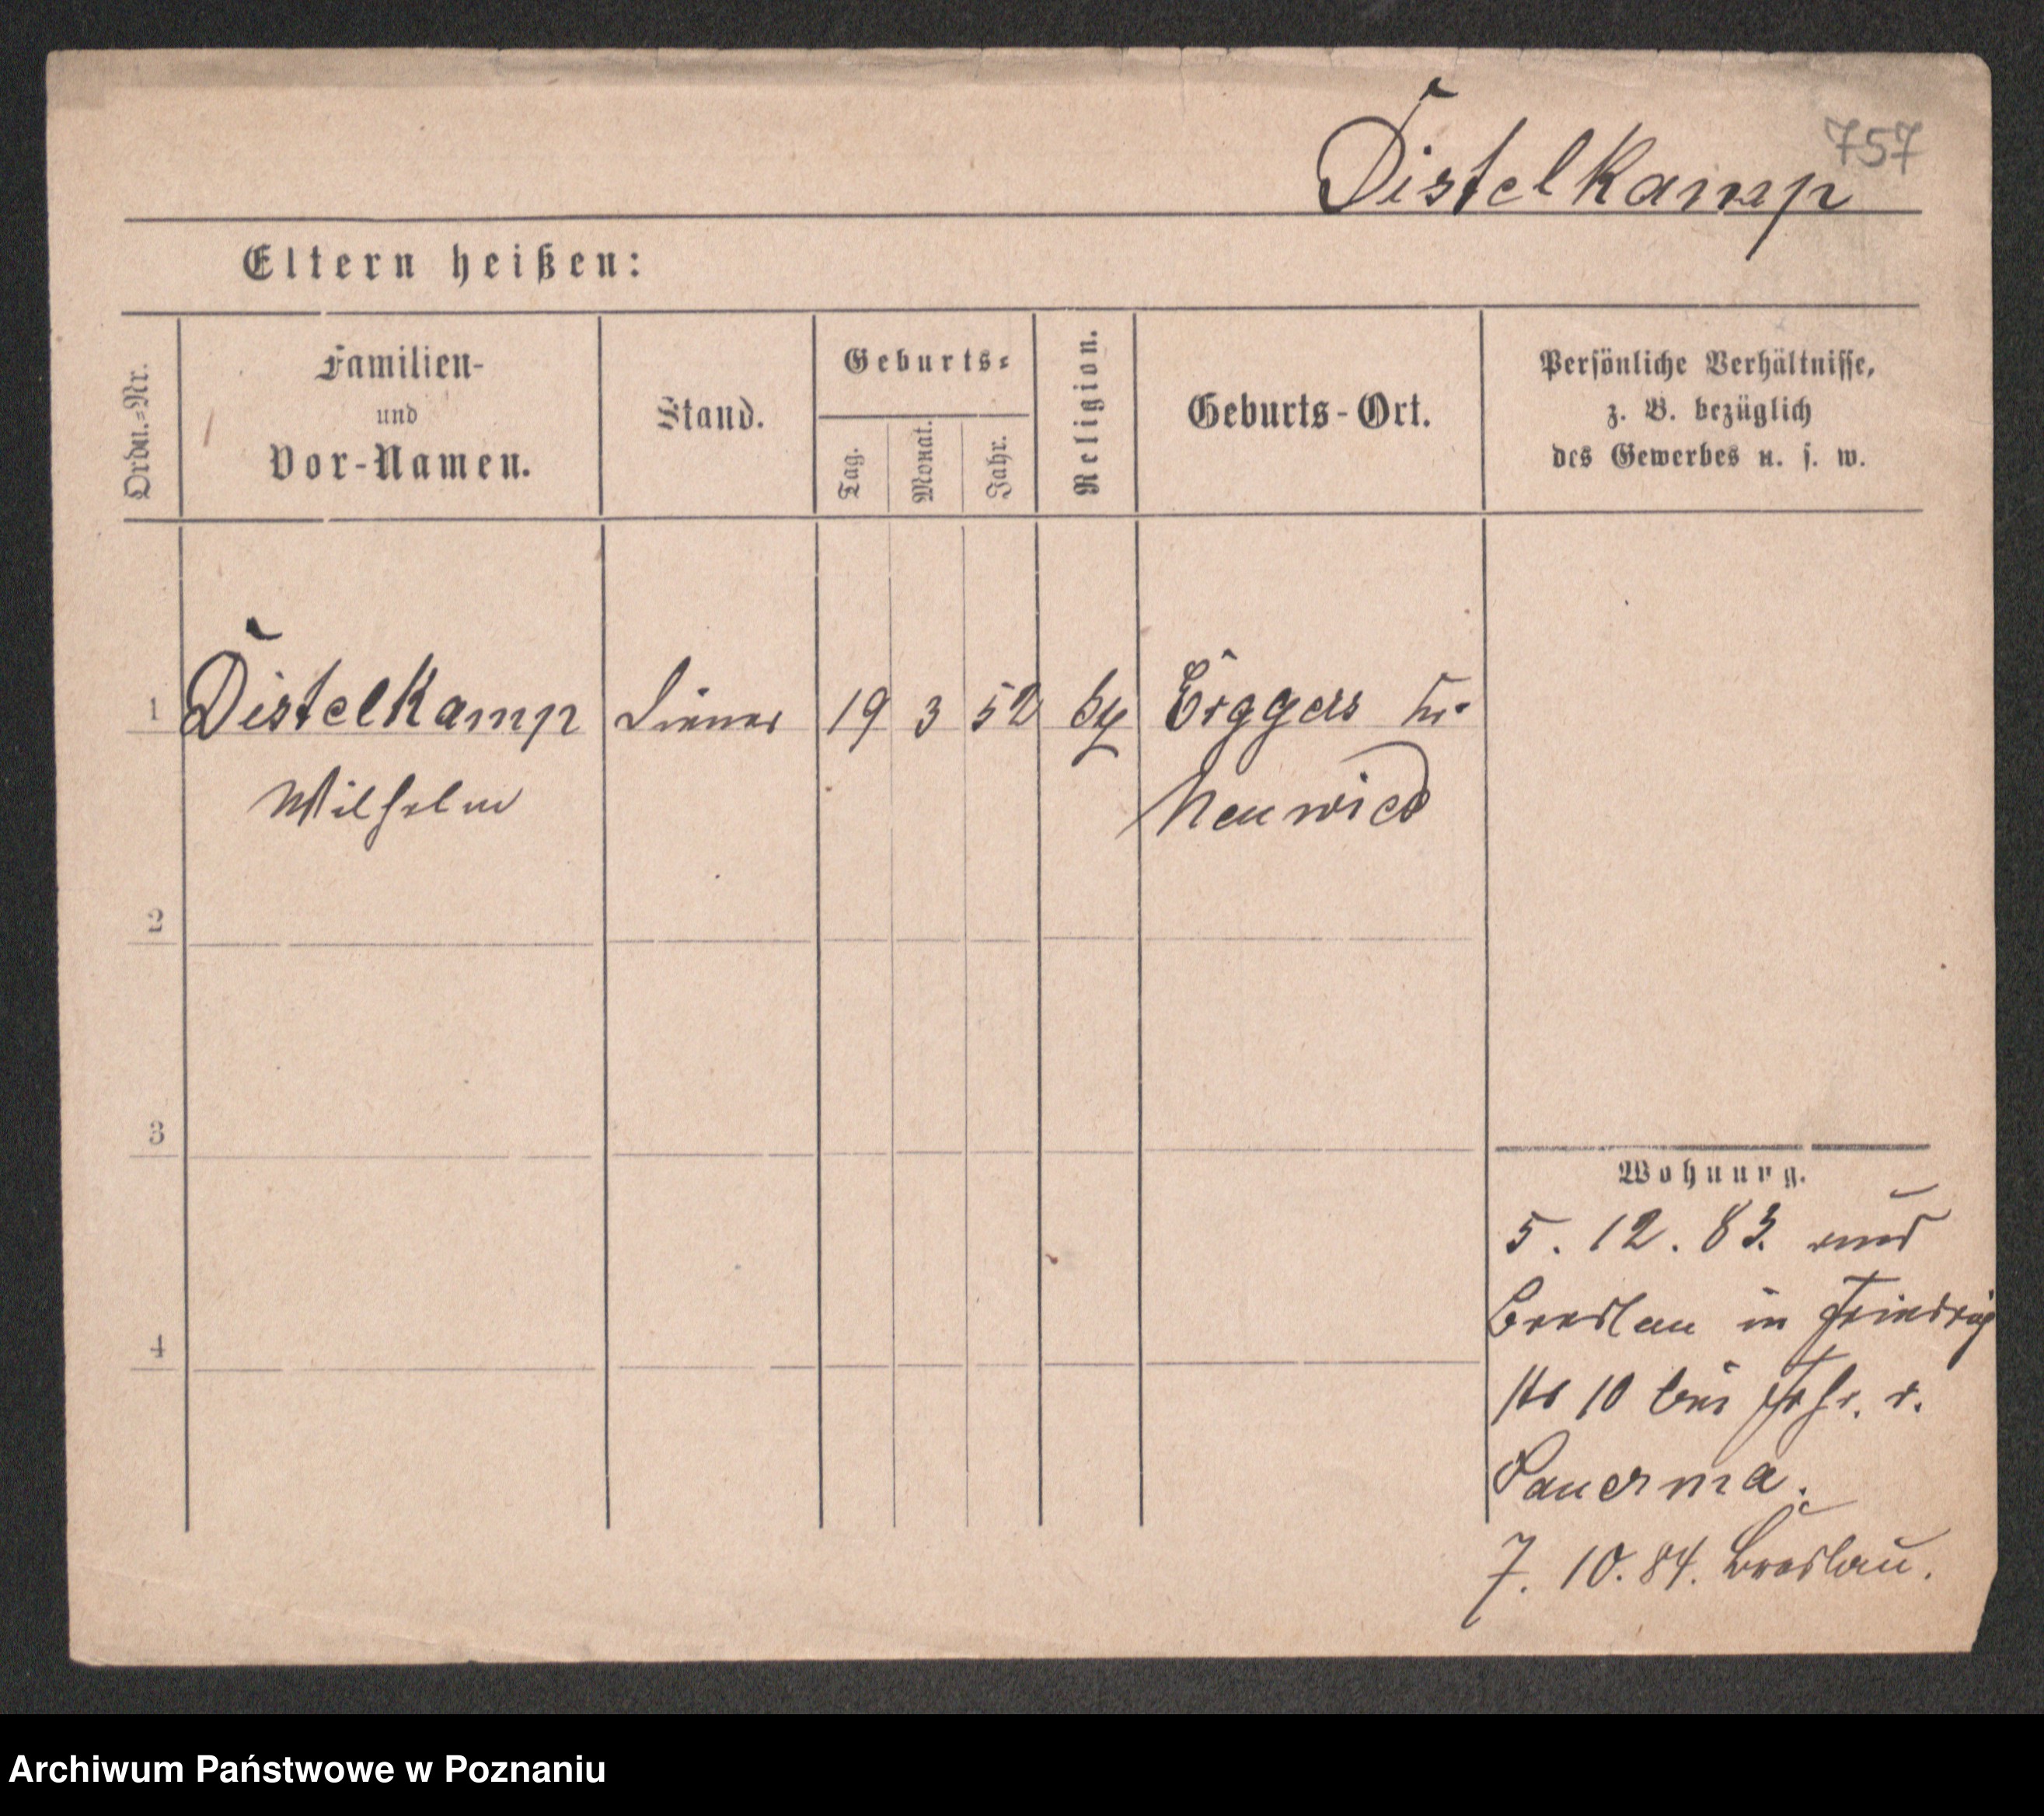 757
Distelkamp
Eltern heißen:
Ordn.=Nr.
Familien-
und
Vor-Namen.
Stand.
Geburts=
Tag.
Monat.
Jahr.
Religion.
Geburts-Ort.
Persönliche Verhältnisse,
z. B. bezüglich
des Gewerbes u. s. w.
1 Distelkamp Diener 19 3 52 Eggers Kr.
Wilhelm Neuwied
2
3
4
Wohnung.
5. 12. 83. und
Breslau in Friedrich
10 bei Frhr. v.
Sauerma.
7. 10. 84. Breslau.
Archiwum Państwowe w Poznaniu